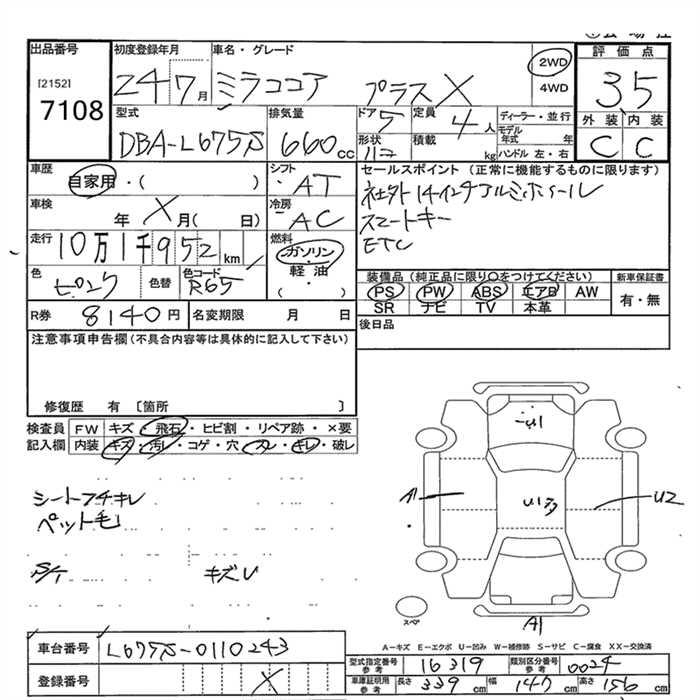 出品番号
[2152]
7108
初度登録年月
24 7月
車名・グレード
ミラココア プラスX
2WD
4WD
評価点
3.5
外装 内装
C C
型式
DBA-L675S
排気量
660 cc
ドア
5
形状
定員
4人
積載
kg
ディーラー・並行
モデル年式 年
ハンドル 左・右
車歴
自家用・( )
車検
年 X 月( 日)
走行
10万1千952 km
色
ピンク
色替
色コード
R65
シフト
AT
冷房
AC
燃料
ガソリン・
軽油
( ・ )
セールスポイント(正常に機能するものに限ります)
社外14インチアルミホイール
スマートキー
ETC
装備品(純正品に限り〇をつけてください)
PS PW ABS エアB AW
SR ナビ TV 本革
新車保証書
有・無
R券 8140円
名変期限 月 日
後日品
注意事項申告欄(不具合内容等は具体的に記入して下さい)
修復歴 有 〔箇所 〕
検査員記入欄
FW キズ・飛石・ヒビ割・リペア跡・×要
内装 キズ・汚レ・コゲ・穴・スレ・キレ・破レ
シートフチキレ
ペット毛
S/T キズU
U1
A1
U13
U2
A1
スペア
A-キズ E-エクボ U-凹み W-補修跡 S-サビ C-腐食 XX-交換済
車台番号 L675S-0110243
登録番号 X
型式指定番号 参考 16319
類別区分番号 参考 0024
車庫証明用 参考 長さ 339cm 幅 147cm 高さ 156cm